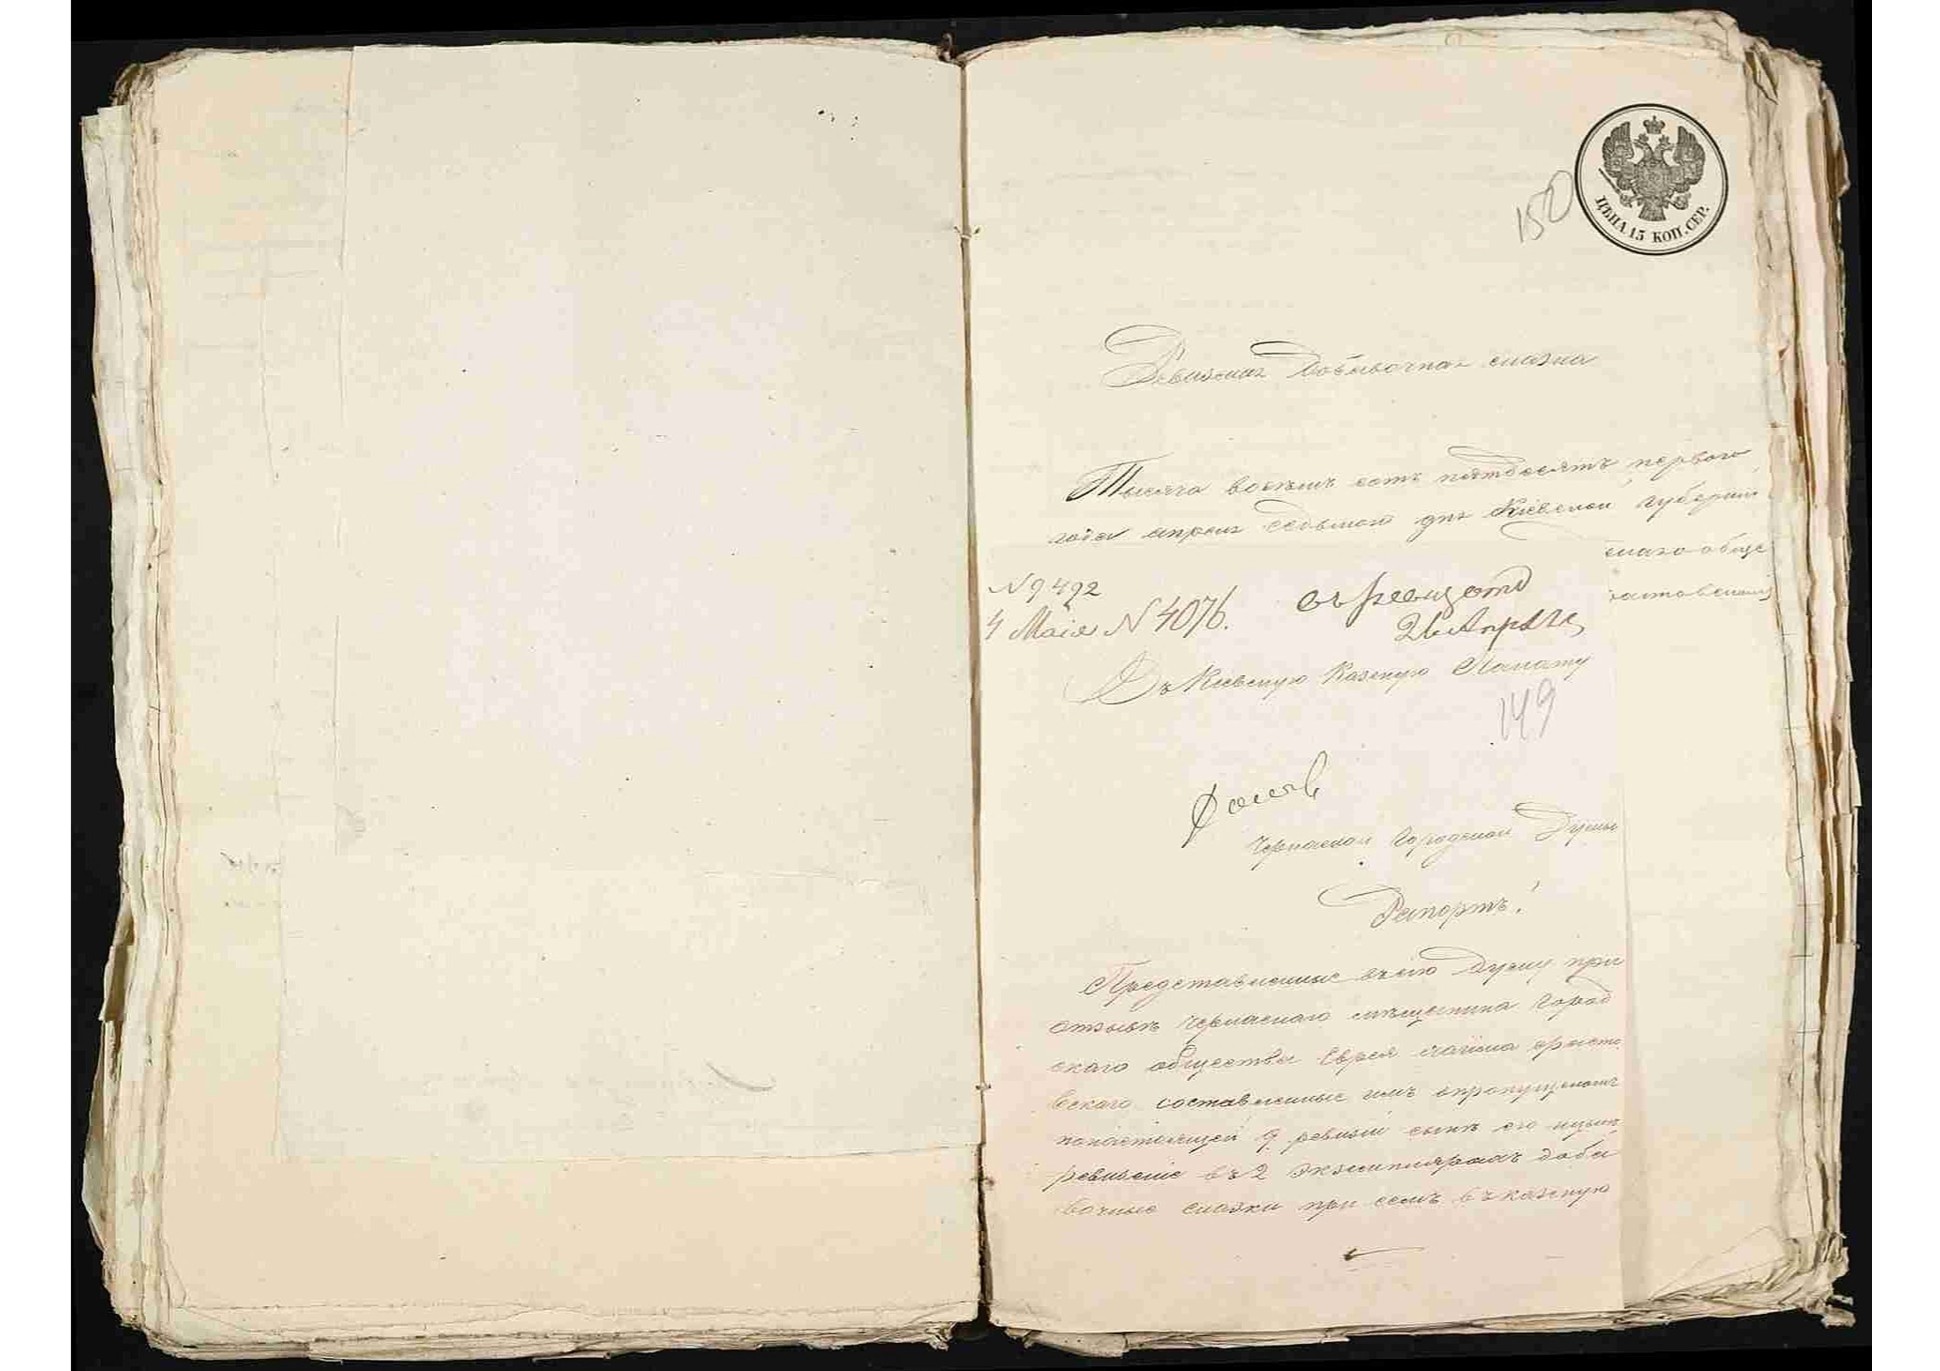 150
ЦѢНА 15 КОП. СЕР.
Ревизкая Добавочная сказка
Тысяча восемь сотъ пятдесятъ перваго
года апреля седьмого дня Кіевской Губерніи
скаго обще
N 9492
4 Маія N 4076.
26 Апрѣля
Въ Кіевскую Казеную Палату
149
Черкаской Городской Думы
Рапортъ!
Представленные въ сію Думу при
отзывѣ Черкаскаго мѣщанина Город
скаго общества Еврея
вскаго составленные имъ о пропущеномъ
по настоящей 9 ревизіи сынѣ его
ревизкіе въ 2 экземплярахъ доба
вочные сказки при семъ въ казеную